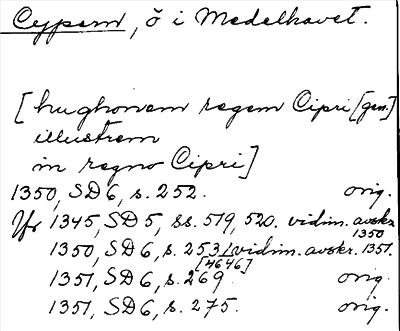 Cypern, ö i Medelhavet.
[hughonem regem Cipri [gen.]
illustrem
in regno Cipri]
1350, SD 6, s. 252. orig.
Jfr 1345, SD 5, ss. 519, 520. vidim. avskr. 1350
1350, SD 6, s. 253 [4646] vidim. avskr. 1351.
1351, SD 6, s. 269. orig.
1351, SD 6, s. 275. orig.